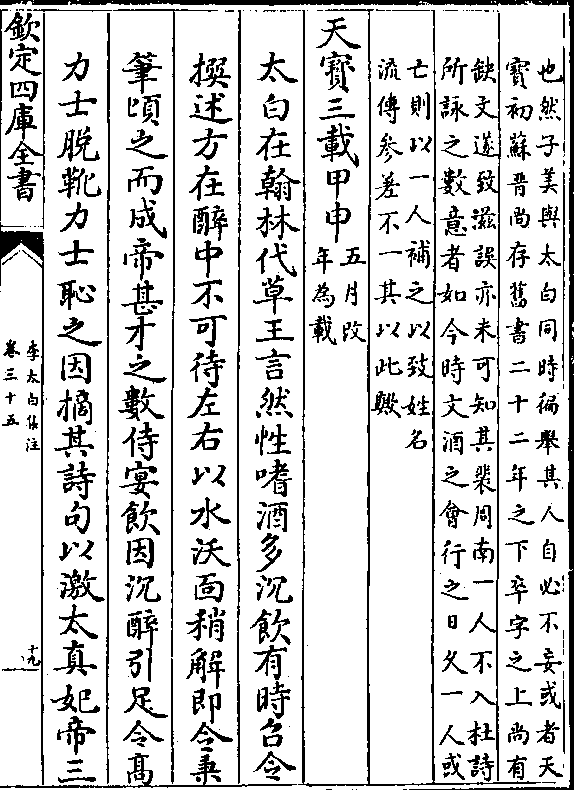 也然子美與太白同時徧舉其人自必不妄或者天
寶初蘇晉尚存舊書二十二年之下卒字之上尚有
缺文遂致滋誤亦未可知其裴周南一人不入杜詩
所詠之數意者如今時文酒之會行之日久一人或
亡則以一人補之以致姓名
流傳參差不一其以此歟
天寶三載甲申五月改
年為載
太白在翰林代草王言然性嗜酒多沉飲有時召令
撰述方在醉中不可待左右以水沃面稍解即令秉
筆頃之而成帝甚才之數侍宴飲因沉醉引足令髙
力士脱靴力士恥之因摘其詩句以激太真妃帝三
欽定四庫全書
李太白集注
卷三十五
十九